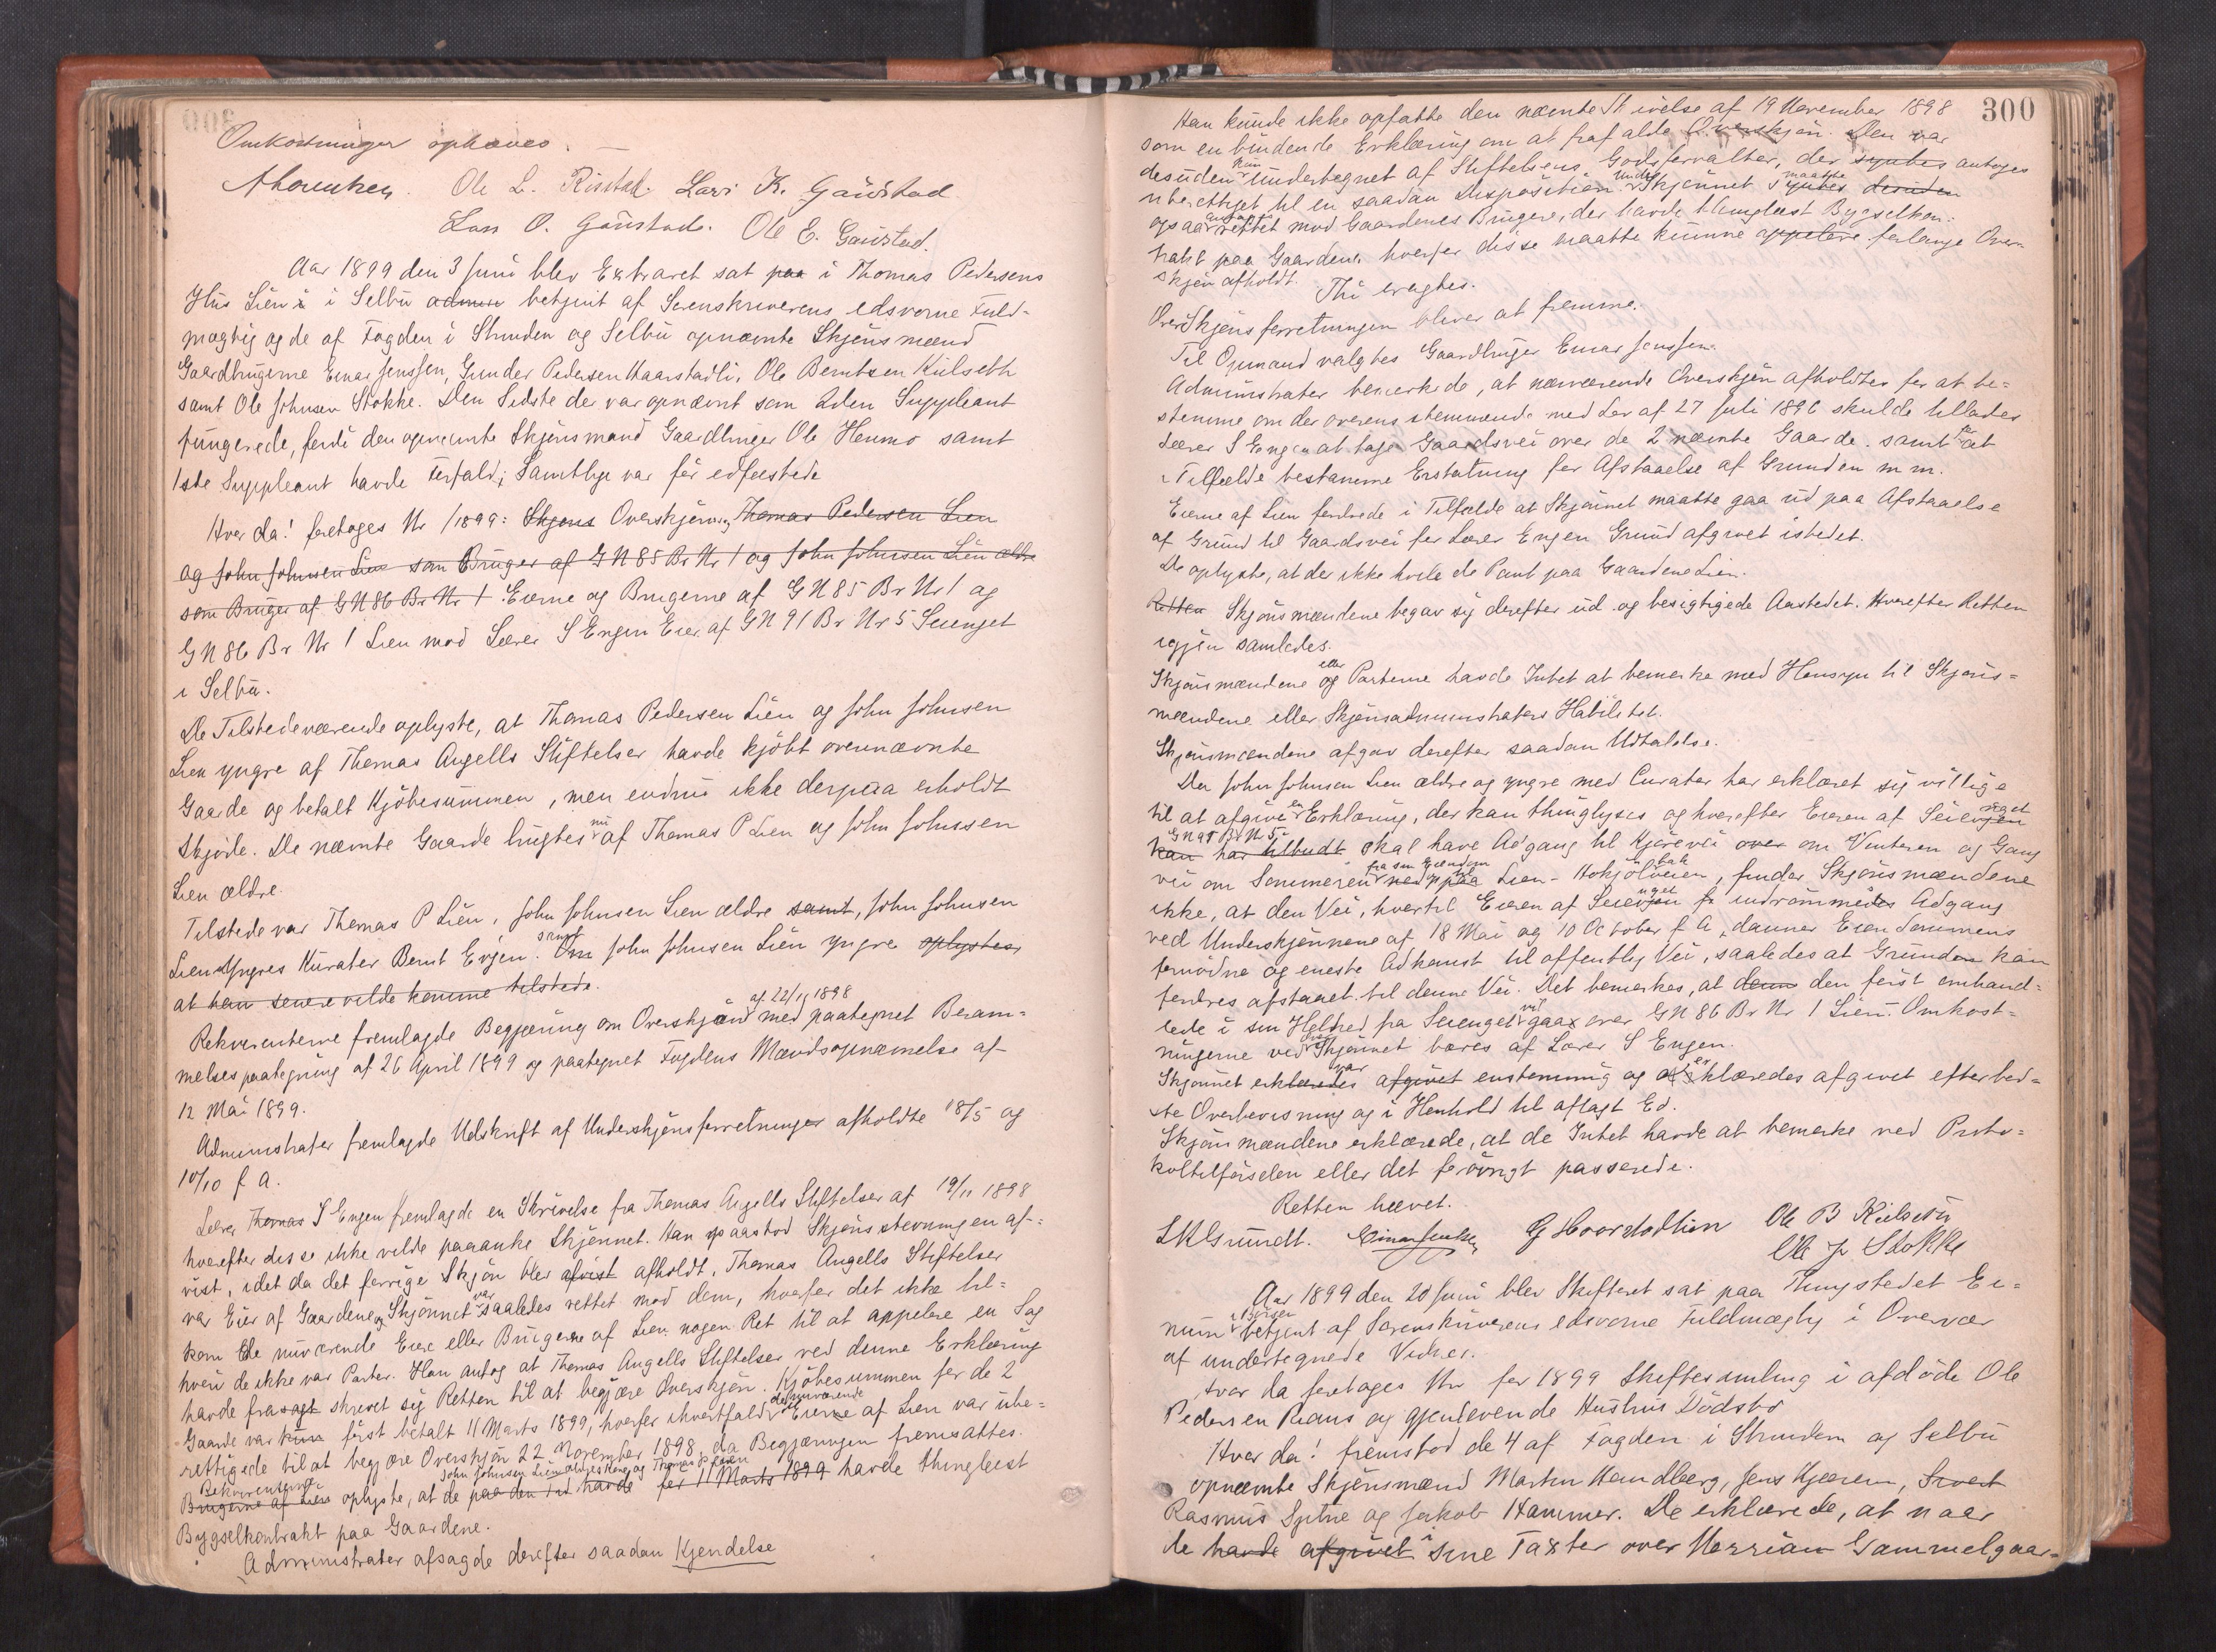 Omkostninger ophæves. —
Ole L. Risstad. Lars K. Gaustad
Lars O. Gaustad. Ole E. Gaustad.
Aar 1899 den 3 Juni blev Extraret sat paa i Thomas Pedersens
Hus Lien i Selbu betjent af Sorenskriverens edsvorne Fuld-
mægtig og de af Fogden i Strinden og Selbu opnævnte Skjönsmænd
Gaardbrugerne Einar Jenssen, Gunder Pedersen Haarstadli, Ole Berntsen Kulseth
samt Ole Johnsen Stokke. Den Sidste der var opnævnt som 2den Suppleant
fungerede, fordi den opnævnte Skjönsmand Gaardbruger Ole Henmo samt
1ste Suppleant havde Forfald; Samtlige var för edfæstede
Hvor da! foretoges Nr /1899: Skjöns Overskjön Thomas Pedersen Lien
og John Johnsen Lien som Bruger af G N 85 Br Nr 1 og John Johnsen Lien ældre
som Bruger af G N 86 Br Nr 1 Eierne og Brugerne af G N 85 Br Nr 1 og
G N 86 Br Nr 1 Lien mod Lærer S Engen Eier af G N 91 Br Nr 5 Seienget
i Selbu.
De Tilstedeværende oplyste, at Thomas Pedersen Lien og John Johnsen
Lien yngre af Thomas Angells Stiftelser havde kjöbt overnævnte
Gaarde og betalt Kjöbesummen, men endnu ikke derpaa erholdt
Skjöde. De nævnte Gaarde brugtes nu af Thomas P Lien og John Johnsen
Lien ældre.
Tilstede var Thomas P Lien, John Johnsen Lien ældre samt, John Johnsen
Lien Yngres Kurator Bernt Evjen. samt Om John Johnsen Lien yngre oplystes,
at han senere vilde komme tilstede.
Rekvirenterne fremlagde Begjæring om Overskjön af 22/11 1898 med paategnet Beram-
melsespaategning af 26 April 1899 og paategnet Fogdens Mandsopnævnelse af
12 Mai 1899.
Administrator fremlagde Udskrift af Underskjönsforretninger afholdte 18/5 og
10/10 f. A.
Lærer Thomas S Engen fremlagde en Skrivelse fra Thomas Angells Stiftelser af 19/11 1898
hvorefter disse ikke vilde paaanke Skjönnet. Han paastod Skjönsstevningen af-
vist, idet da det forrige Skjön blev afvist afholdt, Thomas Angells Stiftelser
var Eier af Gaardene og Skjönnet var saaledes rettet mod dem, hvorfor det ikke til-
kom de nuværende Eiere eller Brugerne af Lien nogen Ret til at appelere en Sag
hvori de ikke var Parter. Han antog at Thomas Angells Stiftelser ved denne Erklæring
havde frasagt skrevet sig Retten til at begjære Overskjön. Kjöbesummen for de 2
Gaarde var kun först betalt 11 Marts 1899, hvorfor ihvertfald de nuværende Eierne af Lien var ube-
rettigede til at begjære Overskjön 22 November 1898, da Begjæringen fremsattes.
Rekvirenterne John Johnsen Lien ældres Kone og Thomas P Lien
Brugerne af Lien oplyste, at de paa den Tid havde för 11 Marts 1899 havde thinglæst
Bygselkontrakt paa Gaardene.
Administrator afsagde derefter saadan Kjendelse
300
Han kunde ikke opfatte den nævnte Skrivelse af 19 November 1898
som en bindende Erklæring om at frafalde Overskjön. Den var
desuden kun undertegnet af Stiftelsens Godsforvalter, der syntes antoges
uberettiget til en saadan Disposition. Underskjönnet syntes maatte desuden
ogsaa antages rettet mod Gaardenes Brugere, der havde thinglæst Bygselkon-
trakt paa Gaardene, hvorfor disse maatte kunne appelere forlange Over-
skjön afholdt. Thi eragtes.
Overskjönsforretningen bliver at fremme.
Til Opmand valgtes Gaardbruger Einar Jenssen.
Administrator bemerkede, at nærværende Overskjön afholdtes for at be-
stemme om der overensstemmende med Lov af 27 Juli 1896 skulde tillades
Lærer S Engen at tage Gaardsvei over de 2 nævnte Gaarde. samt for at
i Tilfælde bestemme Erstatning for Afstaaelse af Grunden m m.
Eierne af Lien fordrede i Tilfælde at Skjönnet maatte gaa ud paa Afstaaelse
af Grund til Gaardsvei for Lærer Engen Grund afgivet istedet.
De oplyste, at der ikke hvilede Pant paa Gaardene Lien.
Retten Skjönsmændene begav sig derefter ud og besigtigede Aastedet. Hvorefter Retten
igjen samledes.
Skjönsmændene eller og Parterne havde Intet at bemerke med Hensyn til Skjöns-
mændene eller Skjönsadministrators Habilitet.
Skjönsmændene afgav derefter saadan Udtalelse.
Da John Johnsen Lien ældre og yngre med Curator har erklæret sig villige
til at afgive en Erklæring, der kan thinglyses og hvorefter Eieren af Seienget
G N 91 Br Nr 5
kan har tilbudt skal have Adgang til Kjörevei over om Vinteren og Gang
vei om Sommeren fra sin Eiendom ned paa til Lien - Hokjölveien, finder Skjönsmændene
ikke, at den Vei, hvortil Eieren af Seienget indrömmedes Adgang
ved Underskjönnene af 18 Mai og 10 October f A, danner Eiendommens
fornödne og eneste Adkomst til offentlig Vei, saaledes at Grunden kan
fordres afstaaet til denne Vei. Det bemerkes, at denne den först omhand-
lede i sin Helhed fra Seienget vil gaa over G N 86 Br Nr 1 Lien. Omkost-
ningerne ved Overskjönnet bæres af Lærer S Engen.
Skjönnet erklæredes var afgivet enstemmig og erklæredes afgivet efter bed-
ste Overbevisning og i Henhold til aflagt Ed.
Skjönsmændene erklærede, at de Intet havde at bemerke ved Proto-
koltilförselen eller det forövrigt passerede.
Retten hævet.
Grundt. Einar Jenssen G Hoorstadlien Ole B Kulseth
Ole J Stokke
Aar 1899 den 20 Juni blev Skifteret sat paa Thingstedet Ei-
num i Börsen betjent af Sorenskriverens edsvorne Fuldmægtig i Overvær
af undertegnede Vidner.
Hvor da foretoges Nr for 1899 Skiftesamling i afdöde Ole
Pedersen Reans og gjenlevende Hustrus Dödsbo
Hvor da! fremstod de 4 af Fogden i Strinden og Selbu
opnævnte Skjönsmænd Martin Handberg, Jens Kjæren, Sivert
Rasmus Sptne og Jakob Hammer. De erklærede, at naar
de havde afgivet i sine Taxter over Gammelgaar-